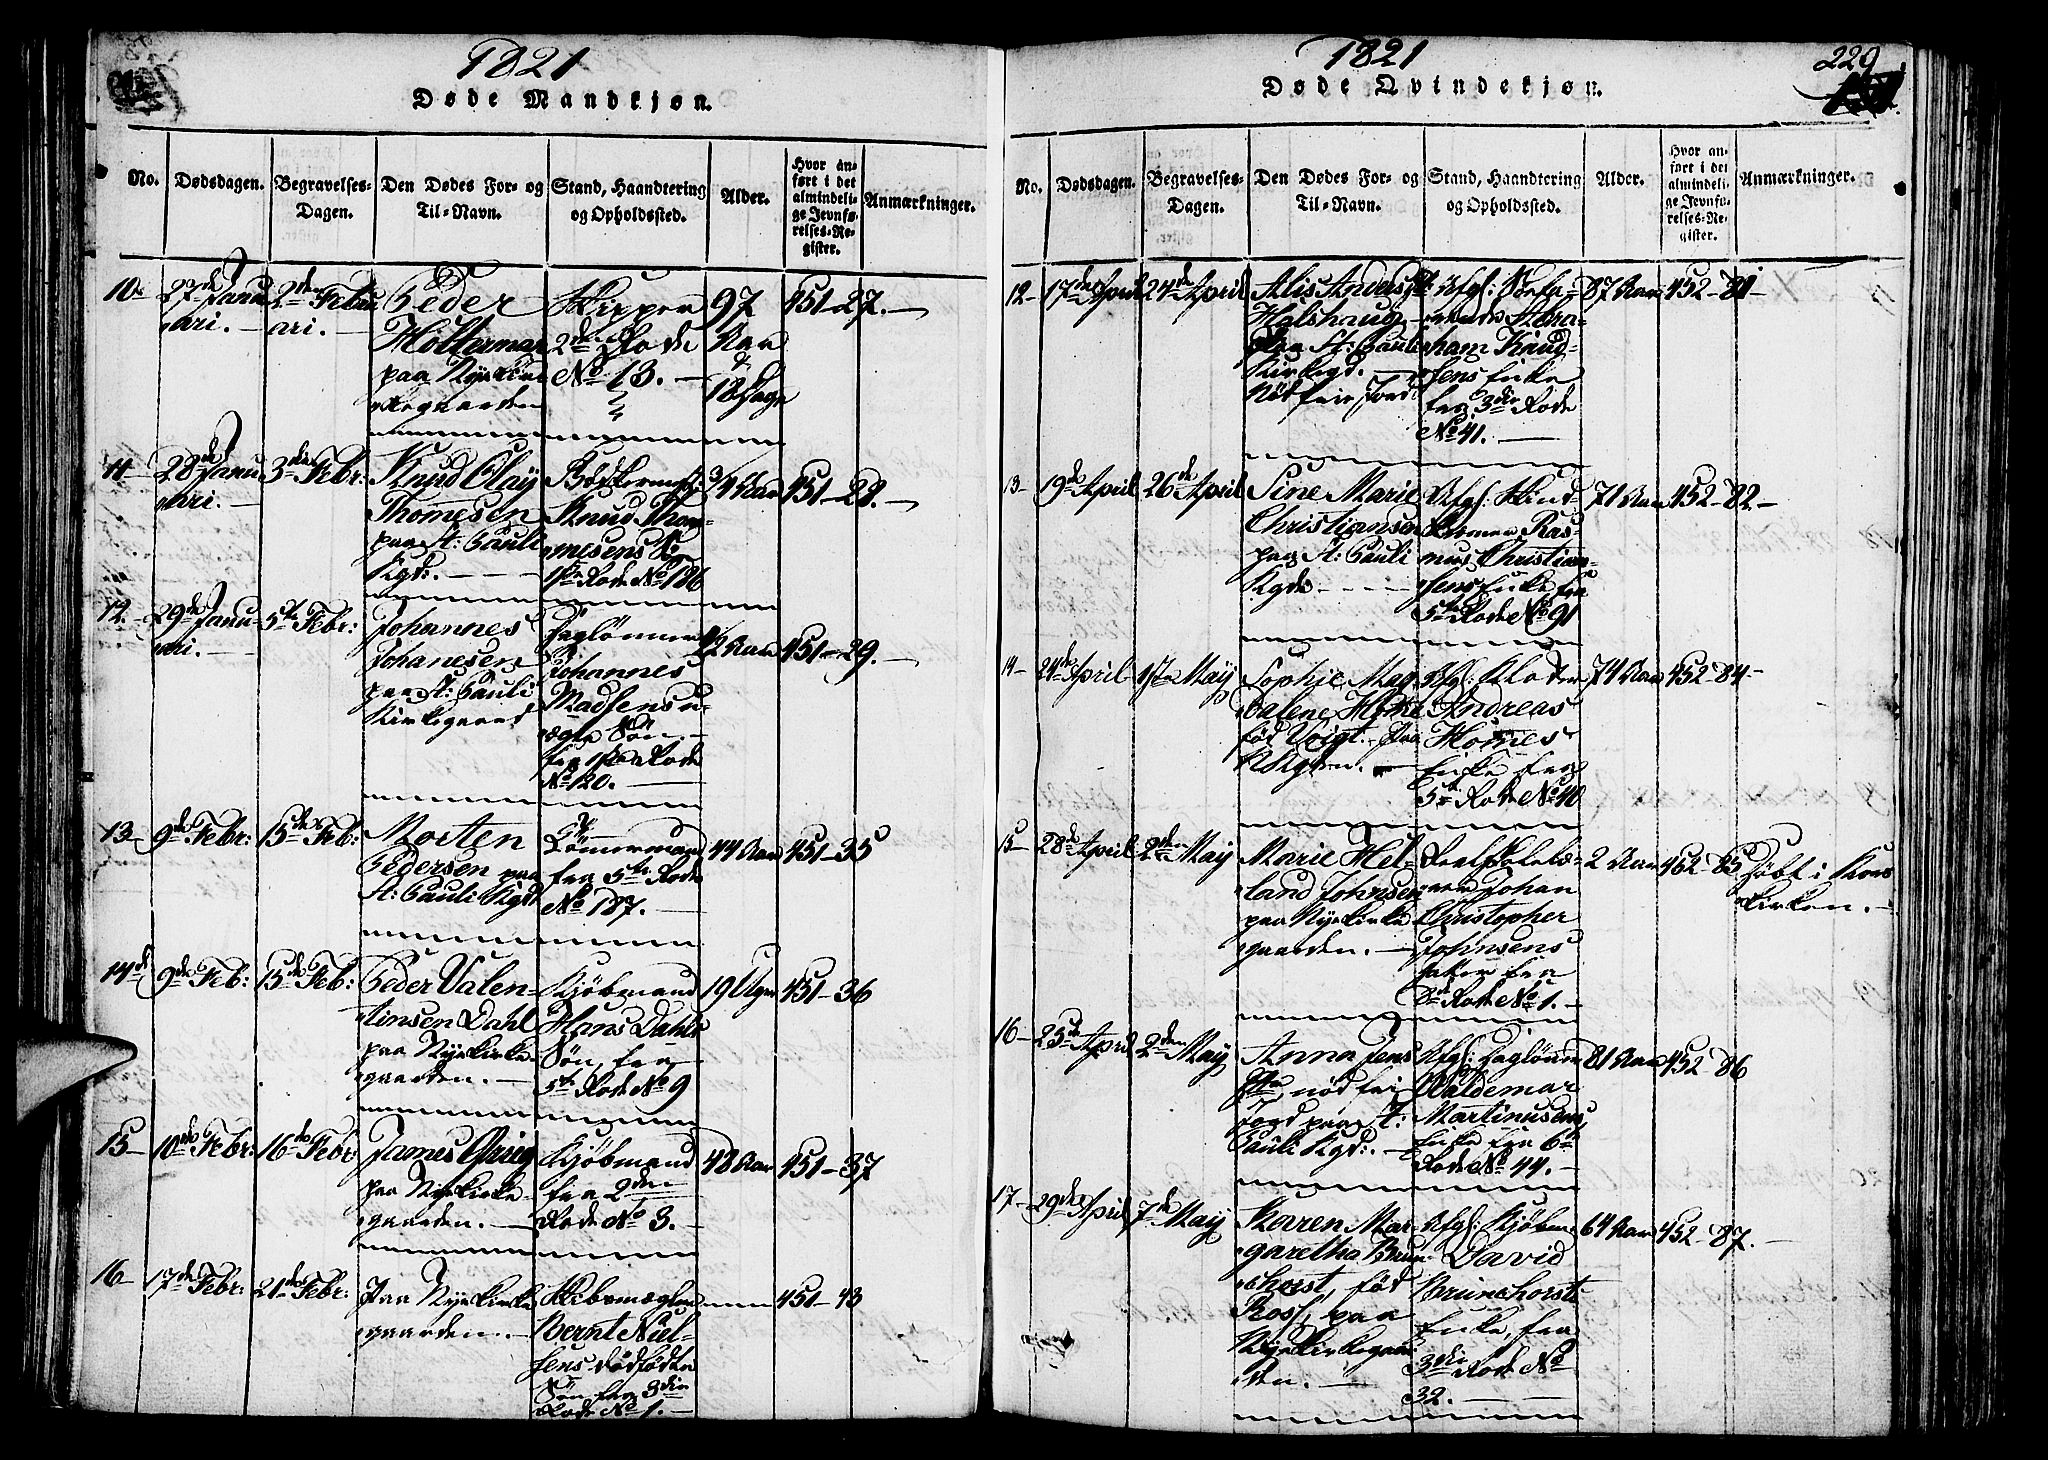 1821
Døde Mandkjøn.
No.
Dødsdagen.
Begravelses-
Dagen.
Den Dødes For- og
Til-Navn.
Stand, Haandtering
og Opholdssted.
Alder.
Hvor an-
ført i det
almindeli-
ge Jevnfø-
relses-Re-
gister.
Anmærkninger.
10
27de Janu
ari.
2den Febru
ari.
Peder
Holterman
paa Nyekirke
gaarden
Skipper
2den Rode
No 13.
97
Aar
&
18 Dage
451-27.
11
28de Janu
ari.
3die Febr:
Knud Olay
Thomesen
paa St: Pauli
Kgd:
Knud Thom-
mesens
1ste Rode No 186
3/4 Aar
451-28.
12.
29de Janu-
ari.
5te Febr:
Johannes
Johanesen
paa St: Pauli
Kirkegaard
Daglönner
Johannes
Madsens u-
ægte Sön.
fra 1ste Rode
No 120.
Aar
451-29.
13
9de Febr:
15de Feb:
Morten
Pedersen paa
St: Pauli Kgd
Tömmermand
fra 5te Rode
No 187.
44 Aar
451-35
14de
9de Feb:
15de Feb:
Peder Valen-
tinsen Dahl
paa Nyekirke
gaarden.
Kjöbmand
Hans Dahls
Sön, fra
5te Rode No 9
19 Uger
451-36
15
10de Febr:
16de Febr:
James Grieg
paa Nyekirke
gaarden.
Kjöbmand
fra 2den
Rode No 3.
48 Aar
451-37
16
17de Febr:
21de Febr:
Paa Nyekirke
gaarden.
Skibsmægler
Bernt Niel-
sens dödfödte
Sön fra 3die
Rode No 1.
451-43
1821
Døde Qvindekjøn.
229
No.
Dødsdagen.
Begravelses-
Dagen.
Den Dødes For- og
Til-Navn.
Stand, Haandtering
og Opholdssted.
Alder.
Hvor an-
ført i det
almindeli-
ge Jevnfø-
relses-Re-
gister.
Anmærkninger.
12
17de April
24de April
Alis Anders
Halshaug
paa St: Pauli
Kirkegd.
Nödfri Jord
Afg:
Abra-
ham Knud-
sens Enke
fra 3die Rode
No 41.
87 Aar
452-81
13
19de April
26de April
Sine Marie
Christiansen
paa St: Pauli
Kgde
Afg:
Ras-
mus Christian-
sens Enke fra
5te Rode No 91
71 Aar
452-82
14
24de April
1ste May
Sophie Mag-
dalene
föd Voigt. Paa
Afg: Kloder
Andreas
Enke fra
5te Rode No 40
74 Aar
452-84
15
28de April
2den May
Marie Hel-
land Johnsen
paa Nyekirke
gaarden.
Johan
Christopher
Johnsens
Datter fra
Rode No 1.
2 Aar
452-85
Döbt i Kors
kirken.
16
25de April
2den May
Anna Jens
nödfri
Jord paa St:
Pauli Kgd:
Afg: Daglönner
Valdemar
Martinusens
Enke fra 6te
Rode No 44.
81 Aar
452-86
17
29de April
7de May
Karen Mar-
garetha Brun
chorst, föd
Ros, paa
Nyekirkegaar
den.
Afg: Kjöbm
David
Brunchorsts
Enke, fra
3die Rode No
32.
64 Aar
452-87.